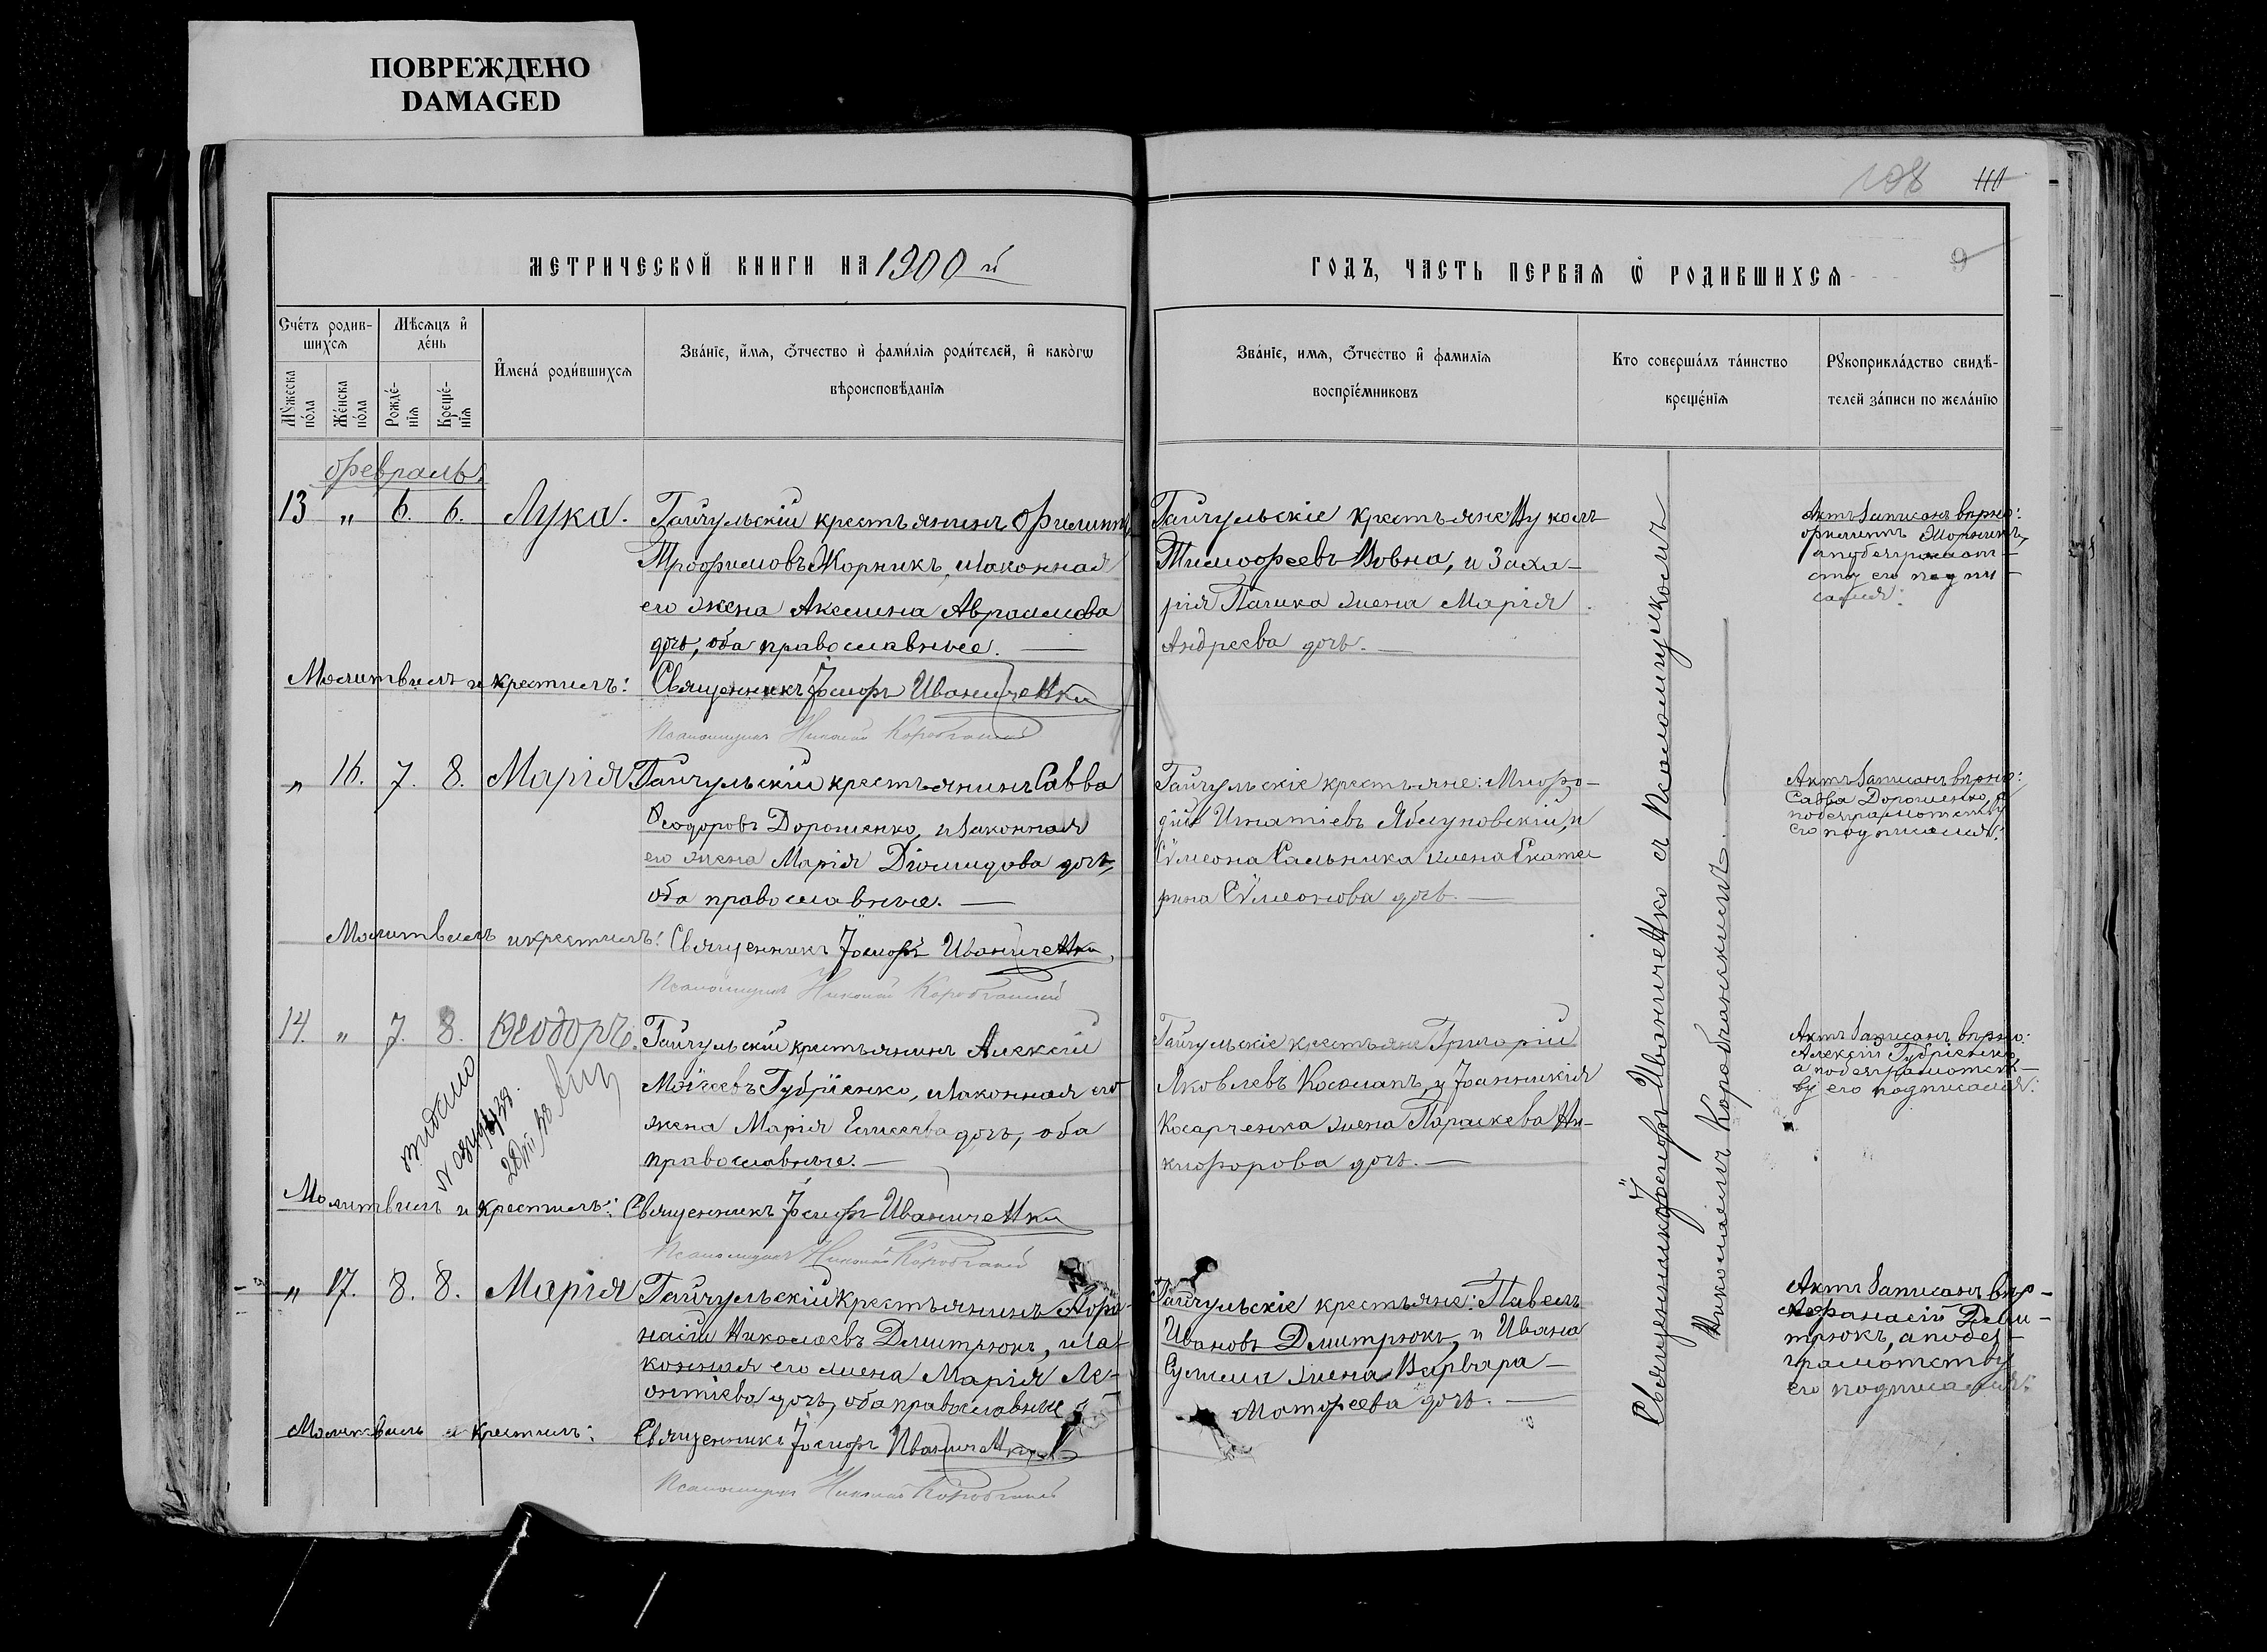 ПОВРЕЖДЕНО
DAMAGED
198 110
МЕТРИЧЕСКОЙ КНИГИ НА 1900 й
ГОДЪ, ЧАСТЬ ПЕРВАЯ Ѡ РОДИВШИХСЯ
9
Счетъ родив-
шихся
Мѣсяцъ и
день
Мужеска
пола
Женска
пола
Рожде-
нія
Креще-
нія
Имена родившихся
Званіе, имя, отчество и фамилія родителей, и какогѡ
вѣроисповѣданія
Званіе, имя, отчество и фамилія
воспріемниковъ
Кто совершалъ таинство
крещенія
Рукоприкладство свидѣ-
телей записи по желанію
Февраль
13 " 6. 6. Лука. Гайчульскій крестьянинъ Филиппъ
Трофимовъ Жорникъ, и законная
его жена Акелина Авраамова
дочь, оба православные.
Молитвилъ и крестилъ: Священникъ Іосифъ Иваниченко
Псаломщикъ Николай
Гайчульскіе крестьяне Вуколъ
Тимофеевъ Вовна, и Заха-
рія Палика жена Марія
Андреева дочь.
Актъ записанъ вѣрно:
Филиппъ Жорникъ,
а по безграмот-
ству его подпи-
сался:
" 16. 7. 8. Марія Гайчульскій крестьянинъ Савва
Ѳеодоровъ Дорошенко, и законная
его жена Марія Діомидова дочь,
оба православные.
Молитвилъ и крестилъ: Священникъ Іосифъ Иваниченко
Псаломщикъ Николай
Гайчульскіе крестьяне: Меѳо-
дій Игнатіевъ Яблуновскій, и
Сѵмеона Сальника жена Екате
рина Сѵмеонова дочь.
Актъ записанъ вѣрно:
Савва Дорошенко, а
по безграмотству
его подписался:
14. " 7. 8. Ѳеодоръ. Гайчульскій крестьянинъ Алексій
Моѵсеевъ Губріенко, и законная его
жена Марія Елисеева дочь, оба
православные.
Молитвилъ и крестилъ: Священникъ Іосифъ Иваниченко
Псаломщикъ Николай
Гайчульскіе крестьяне Григорій
Яковлевъ Косолапъ, и Іоанникія
Косарченка жена Параскева Ни-
кифорова дочь.
Актъ записанъ вѣрно:
Алексій Губріенко,
а по безграмотст-
ву его подписался:
" 17. 8. 8. Марія Гайчульскій крестьянинъ Аѳа-
насій Николаевъ Дмитрюкъ, и за-
конная его жена Марія Ле-
онтіева дочь, оба православные
Молитвилъ и крестилъ: Священникъ Іосифъ Иваниченко
Псаломщикъ Николай
Гайчульскіе крестьяне: Павелъ
Ивановъ Дмитрюкъ, и Ивана
жена Варвара
Матфеева дочь.
Актъ записанъ вѣр-
Аѳанасій Дми-
трюкъ, а по без-
грамотству
его подписался:
Священникъ Іосифъ Иваниченко съ псаломщикомъ
Николаемъ Коробчанскимъ.